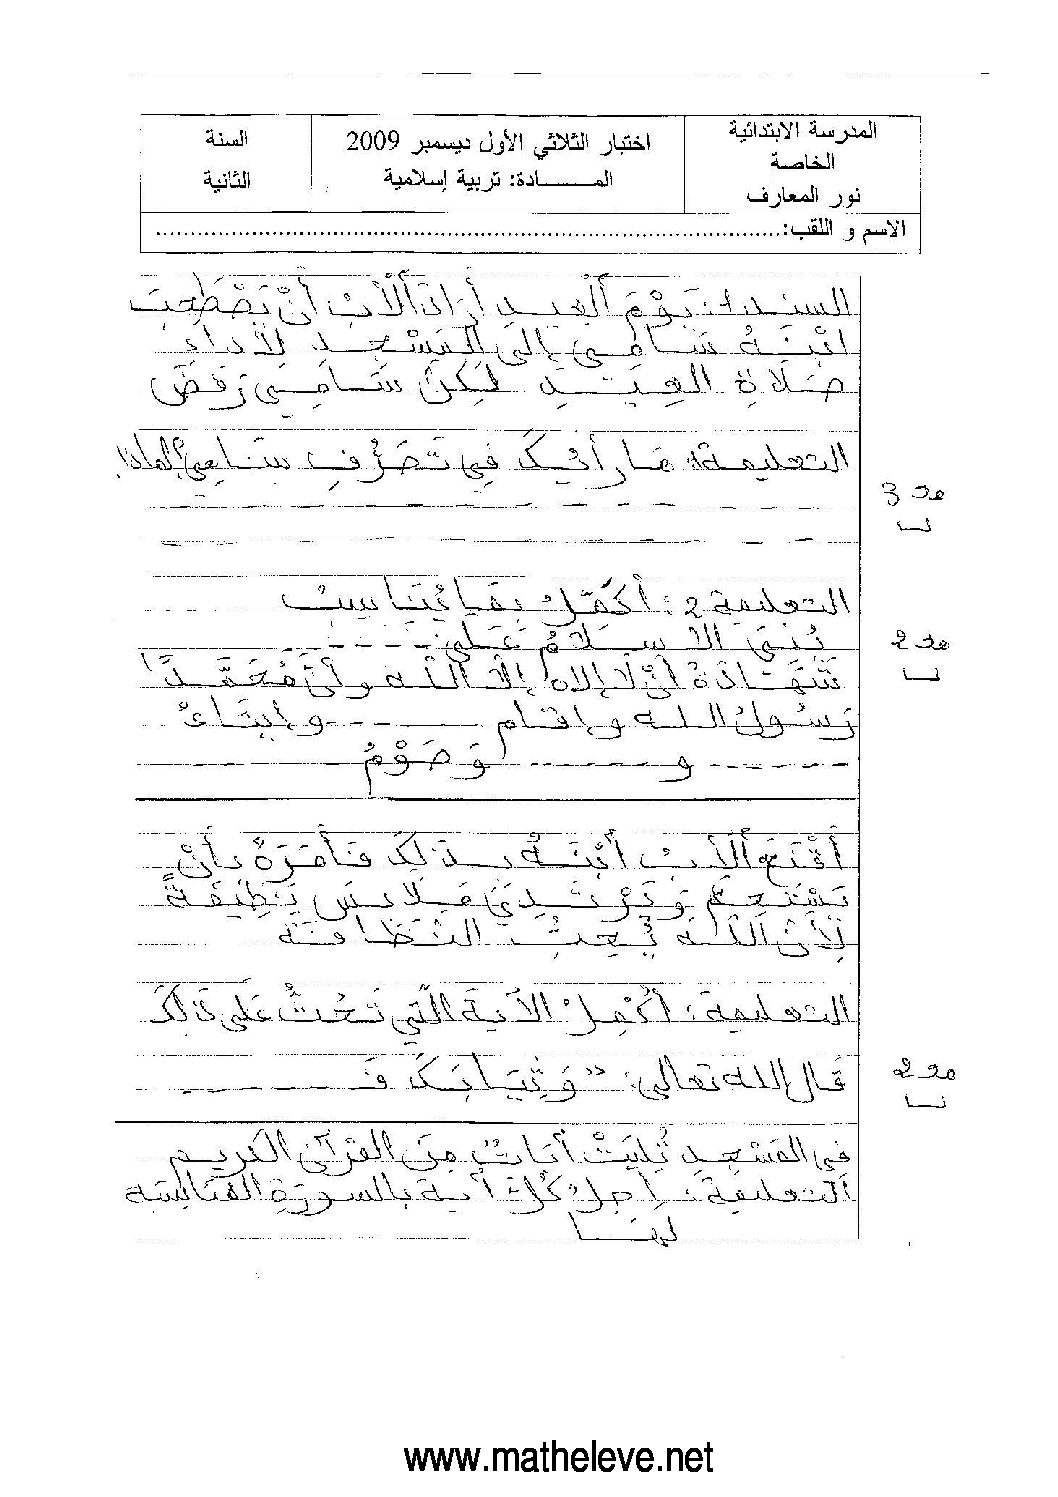 المدرسة الابتدائية
الخاصة
نور المعارف
اختبار الثلاثي الأول ديسمبر 2009
المـــــــادة: تربية إسلامية
السنة
الثانية
الاسم و اللقب:..........................................................................................
السند1: يَوْمَ اَلْعِيدِ أَرَادَ اَلْأَبُ أَنْ يَصْطَحِبَ
ابْنَهُ سَامِي إِلَى الْمَسْجِدِ لِأَدَاءِ
صَلَاةِ الْعِيدِ لَكِنَّ سَامِي رَفَضَ
التعليمة1: مَا رَأْيُكَ فِي تَصَرُّفِ سَامِي؟ لماذا؟
مع3
ــا
التعليمة 2: أُكَمِّلُ بِمَا يُنَاسِبُ
مع2
ــا
يُبْنَى الإِسْلَامُ عَلَى: - - - - -
شَهَادَةُ أَنْ لَا إِلاه إِلَّا اللَّه وأنّ مُحَمَّدًا
رَسُولُ الله وإقام - - - - وإيتَاءُ
- - - - - - و - - - - - وَصَوْمُ
أَقْنَعَ اَلْأَبُ اُبْنَهُ بِذَلِكَ فَأَمَرَهُ بِأَنْ
يَسْتَحِمَّ وَيَرْتَدِيَ مَلَابِسَ نَظِيفَةً
لِأَنَّ اَللَّهَ يُحِبُّ النَّظَافَةَ
التعليمة: أُكْمِلُ الْآيَةَ الَّتِي تَحُثُّ عَلَى ذَلِكَ
قَالَ الله تعالى: "وَثِيَابَكَ فَـ - - - - -
مع2
ــا
فِي الْمَسْجِدِ تُلِيَتْ آيَاتٌ مِنَ الْقُرْآنِ الْكَرِيمِ
التعليمة: أَصِلُ كُلَّ آيَة بالسورة المُنَاسِبَة
لهَــا
www.matheleve.net